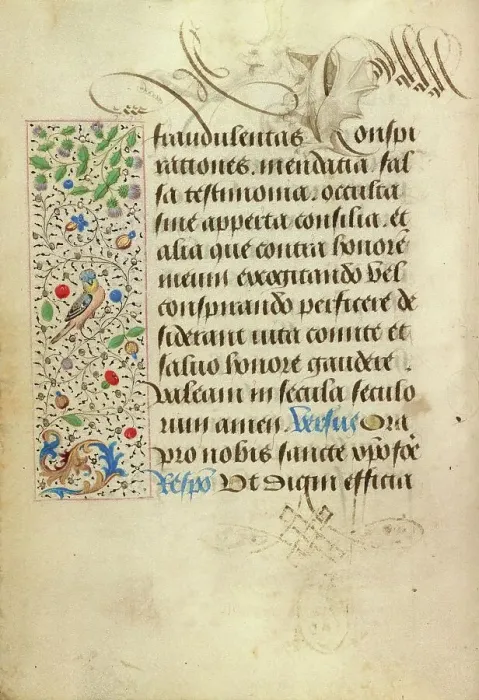 fraudulentas Conspi
rationes. mendatia fal
sa testimonia. occulta
siue apperta consilia. et
alia que contra honorē
meum excogitando vel
conspirando perficere de
siderant iuta comite et
saluo honore gaudere .
valeam in secula seculo
rum amen. Versus Ora
pro nobis sancte xp̄ofore
Respō Ut digni efficia